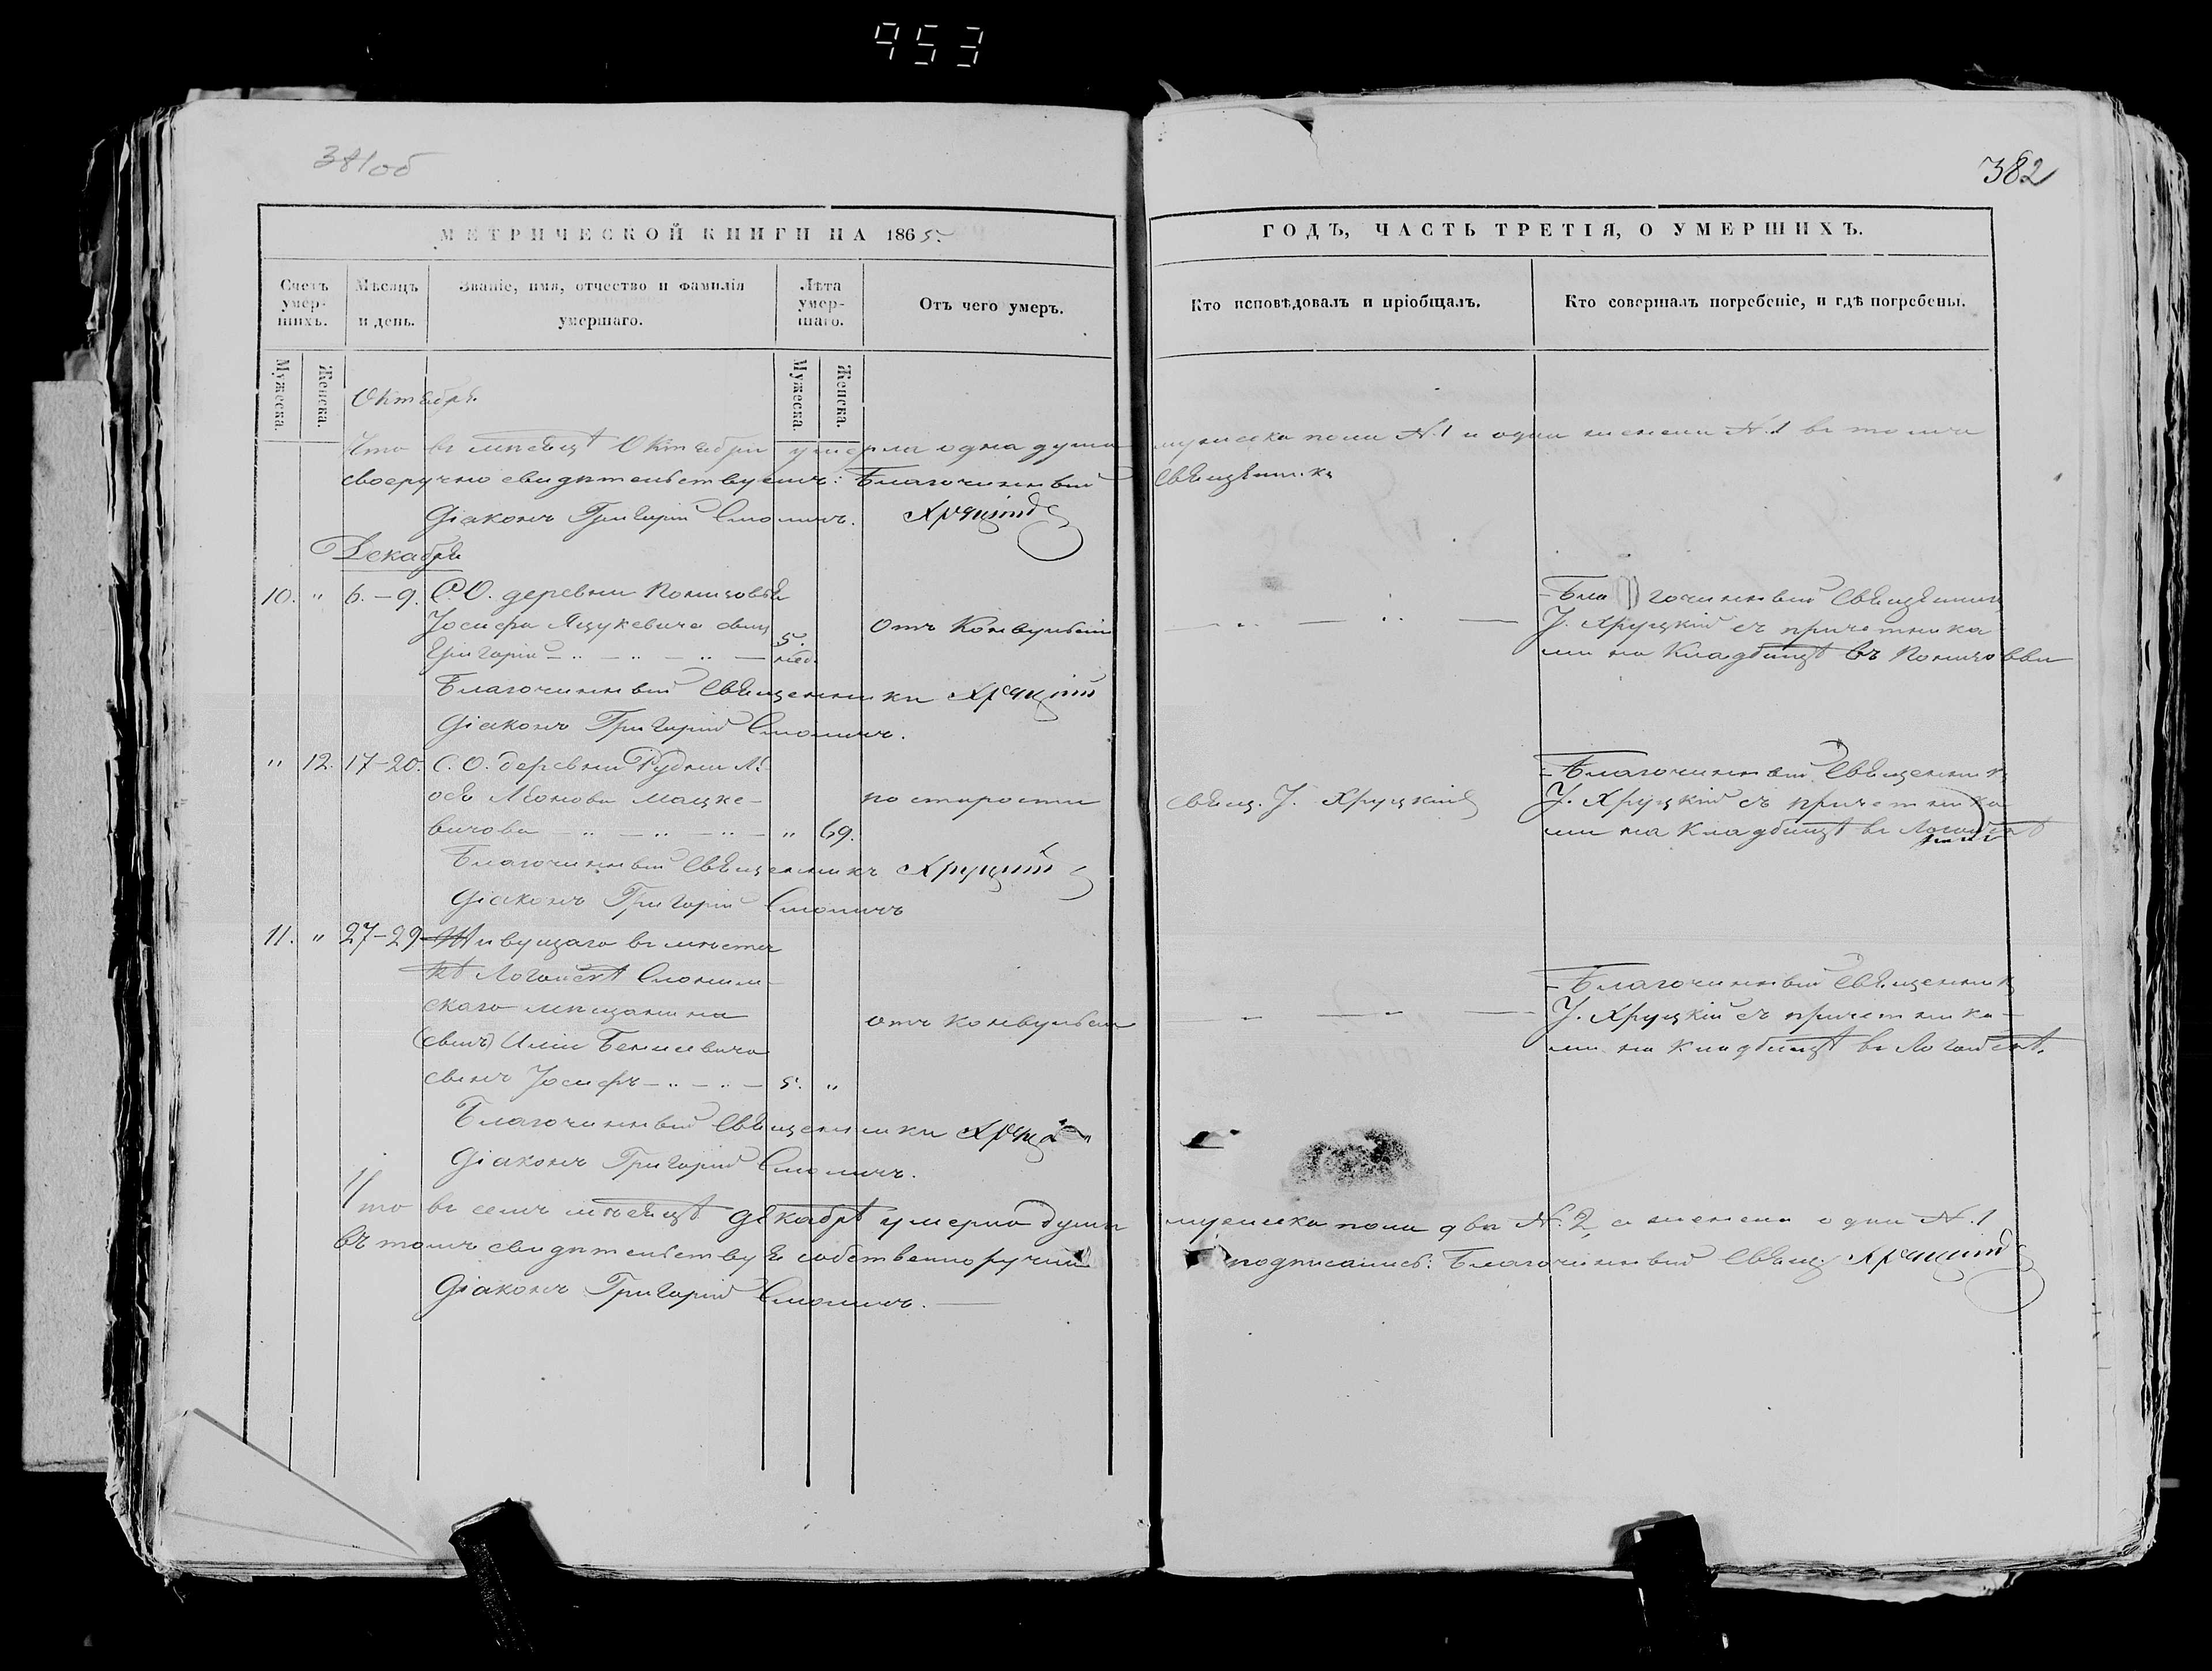 953
381об
382
МЕТРИЧЕСКОЙ КНИГИ НА 1865.
ГОДЪ, ЧАСТЬ ТРЕТІЯ, О УМЕРШИХЪ.
Счетъ умер-шихъ.
Мѣсяцъ и день.
Званіе, имя, отчество и фамилія умершаго.
Лѣта умер-шаго.
Отъ чего умеръ.
Кто исповѣдовалъ и пріобщалъ.
Кто совершалъ погребеніе, и гдѣ погребены.
Мужеска.
Женска.
Мужеска.
Женска.
Октября.
Что въ мѣсяцѣ Октябри умерла одна душа мужеска пола №1 и одна женска №1 въ томъ
своеручно свидѣтельствуемъ: Благочинный Священникъ
Діаконъ Григорій Смоличъ. Хруцкій
Декабря
10. " 6.-9. С.О. деревни Понизовья
Іосифа Яцукевича сынъ
Григорій 5. нед.
Отъ Конвульсіи
Благочинный Священникъ
І. Хруцкій съ причетника
ми на Кладбищѣ въ
Благочинный Священникъ Хруцкій
Діаконъ Григорій Смоличъ.
" 12. 17-20. С.О. деревни Рудни
Леонова Мацке-
вичова " 69.
по старости
Свящ. І. Хруцкій
Благочинный Священникъ
І. Хруцкій съ причетника
ми на Кладбищѣ въ
Благочинный Священникъ Хруцкій
Діаконъ Григорій Смоличъ
11. " 27-29 Живущаго въ мѣстеч
кѣ Логойскѣ Слоним-
скаго мѣщанина
Иліи
сынъ Іосифъ 5. "
отъ конвульсіи
Благочинный Священникъ
І. Хруцкій съ причетника-
ми на кладбищѣ въ Логойскѣ.
Благочинный Священникъ
Діаконъ Григорій Смоличъ.
Что въ семъ мѣсяцѣ Декабрѣ умерло душъ мужеска пола два №.2, а женска одна №.1
въ томъ свидѣтельствуя собственноручно подписались: Благочинный Свящ. Хруцкій
Діаконъ Григорій Смоличъ.